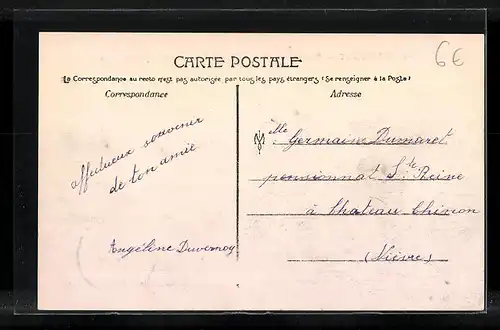 6€
CARTE POSTALE
La Correspondance au recto n'est pas autorisée par tous les pays étrangers (Se renseigner à la Poste)
Correspondance
Adresse
affectueux souvenir
de ton amie
Angéline Duvernoy
Mlle Germaine Dumaret
pensionnat Ste Reine
à Chateau Chinon
(Nièvre)